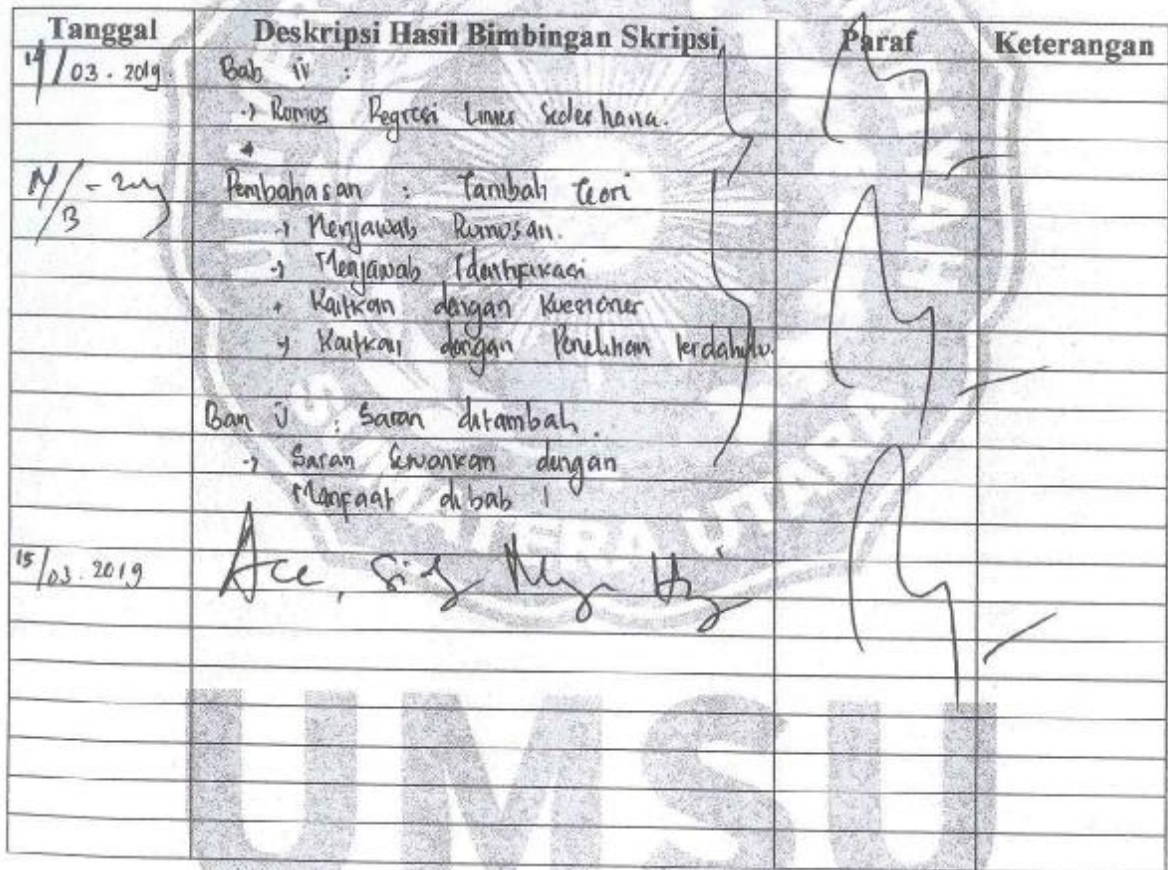 Tanggal Deskripsi Hasil Bimbingan Skripsi Paraf Keterangan
14/03.2019. Bab iv :
-> Rumus Regresi Linier Sederhana.
Pembahasan : Tambah teori
-> Menjawab Rumusan.
-> Menjawab Identifikasi
Kaitkan dengan Kuesioner
-> Kaitkan dengan Penelitian terdahulu.
Bab V : Saran ditambah.
-> Saran dengan
Manfaat dibab 1
15/03.2019 Acc,
UMSU